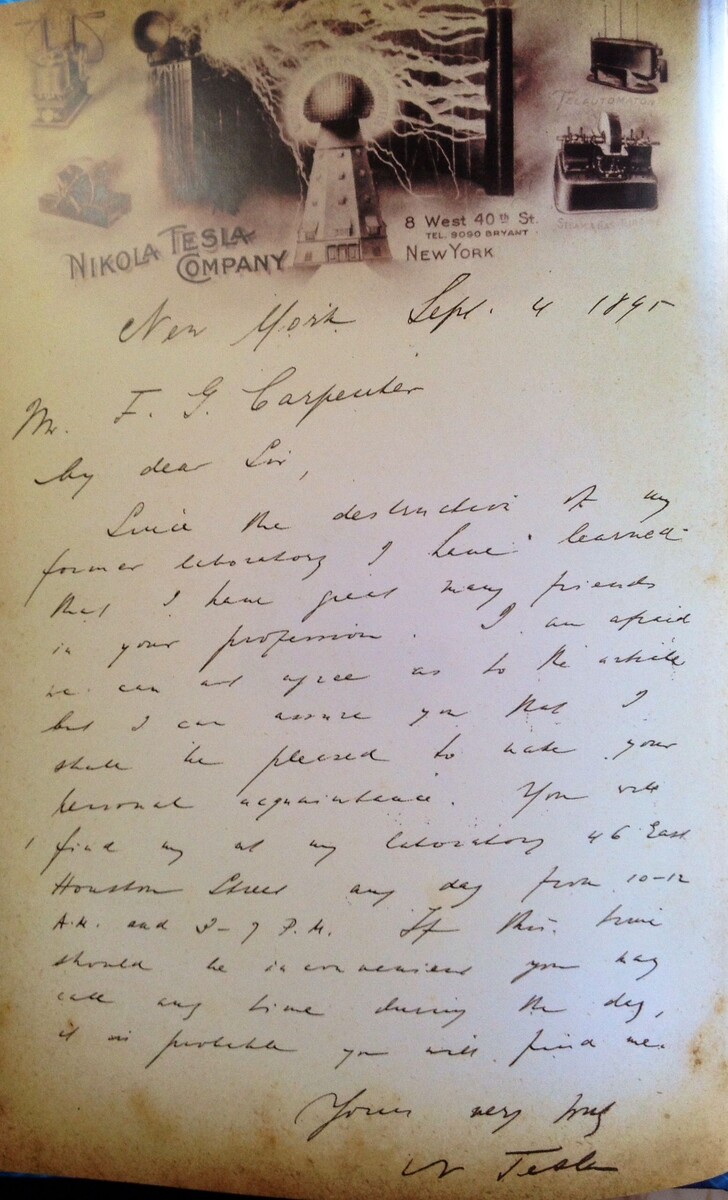 TELAUTOMATON
NIKOLA TESLA COMPANY
8 West 40th St.
TEL. 9090 BRYANT
NEW YORK
New York Sept. 4 1895
Mr. F. G. Carpenter
My dear Sir,
Since the destruction of my
former laboratory I have learned
that I have great many friends
in your profession. I am afraid
we can not agree as to the article
but I can assure you that I
shall be pleased to make your
personal acquaintance. You will
find my at my laboratory 46 East
Houston Street any day from 10-12
A.M. and P.M. If this time
should be inconvenient you may
call any time during the day,
it is probable you will find me.
Yours very truly
N Tesla